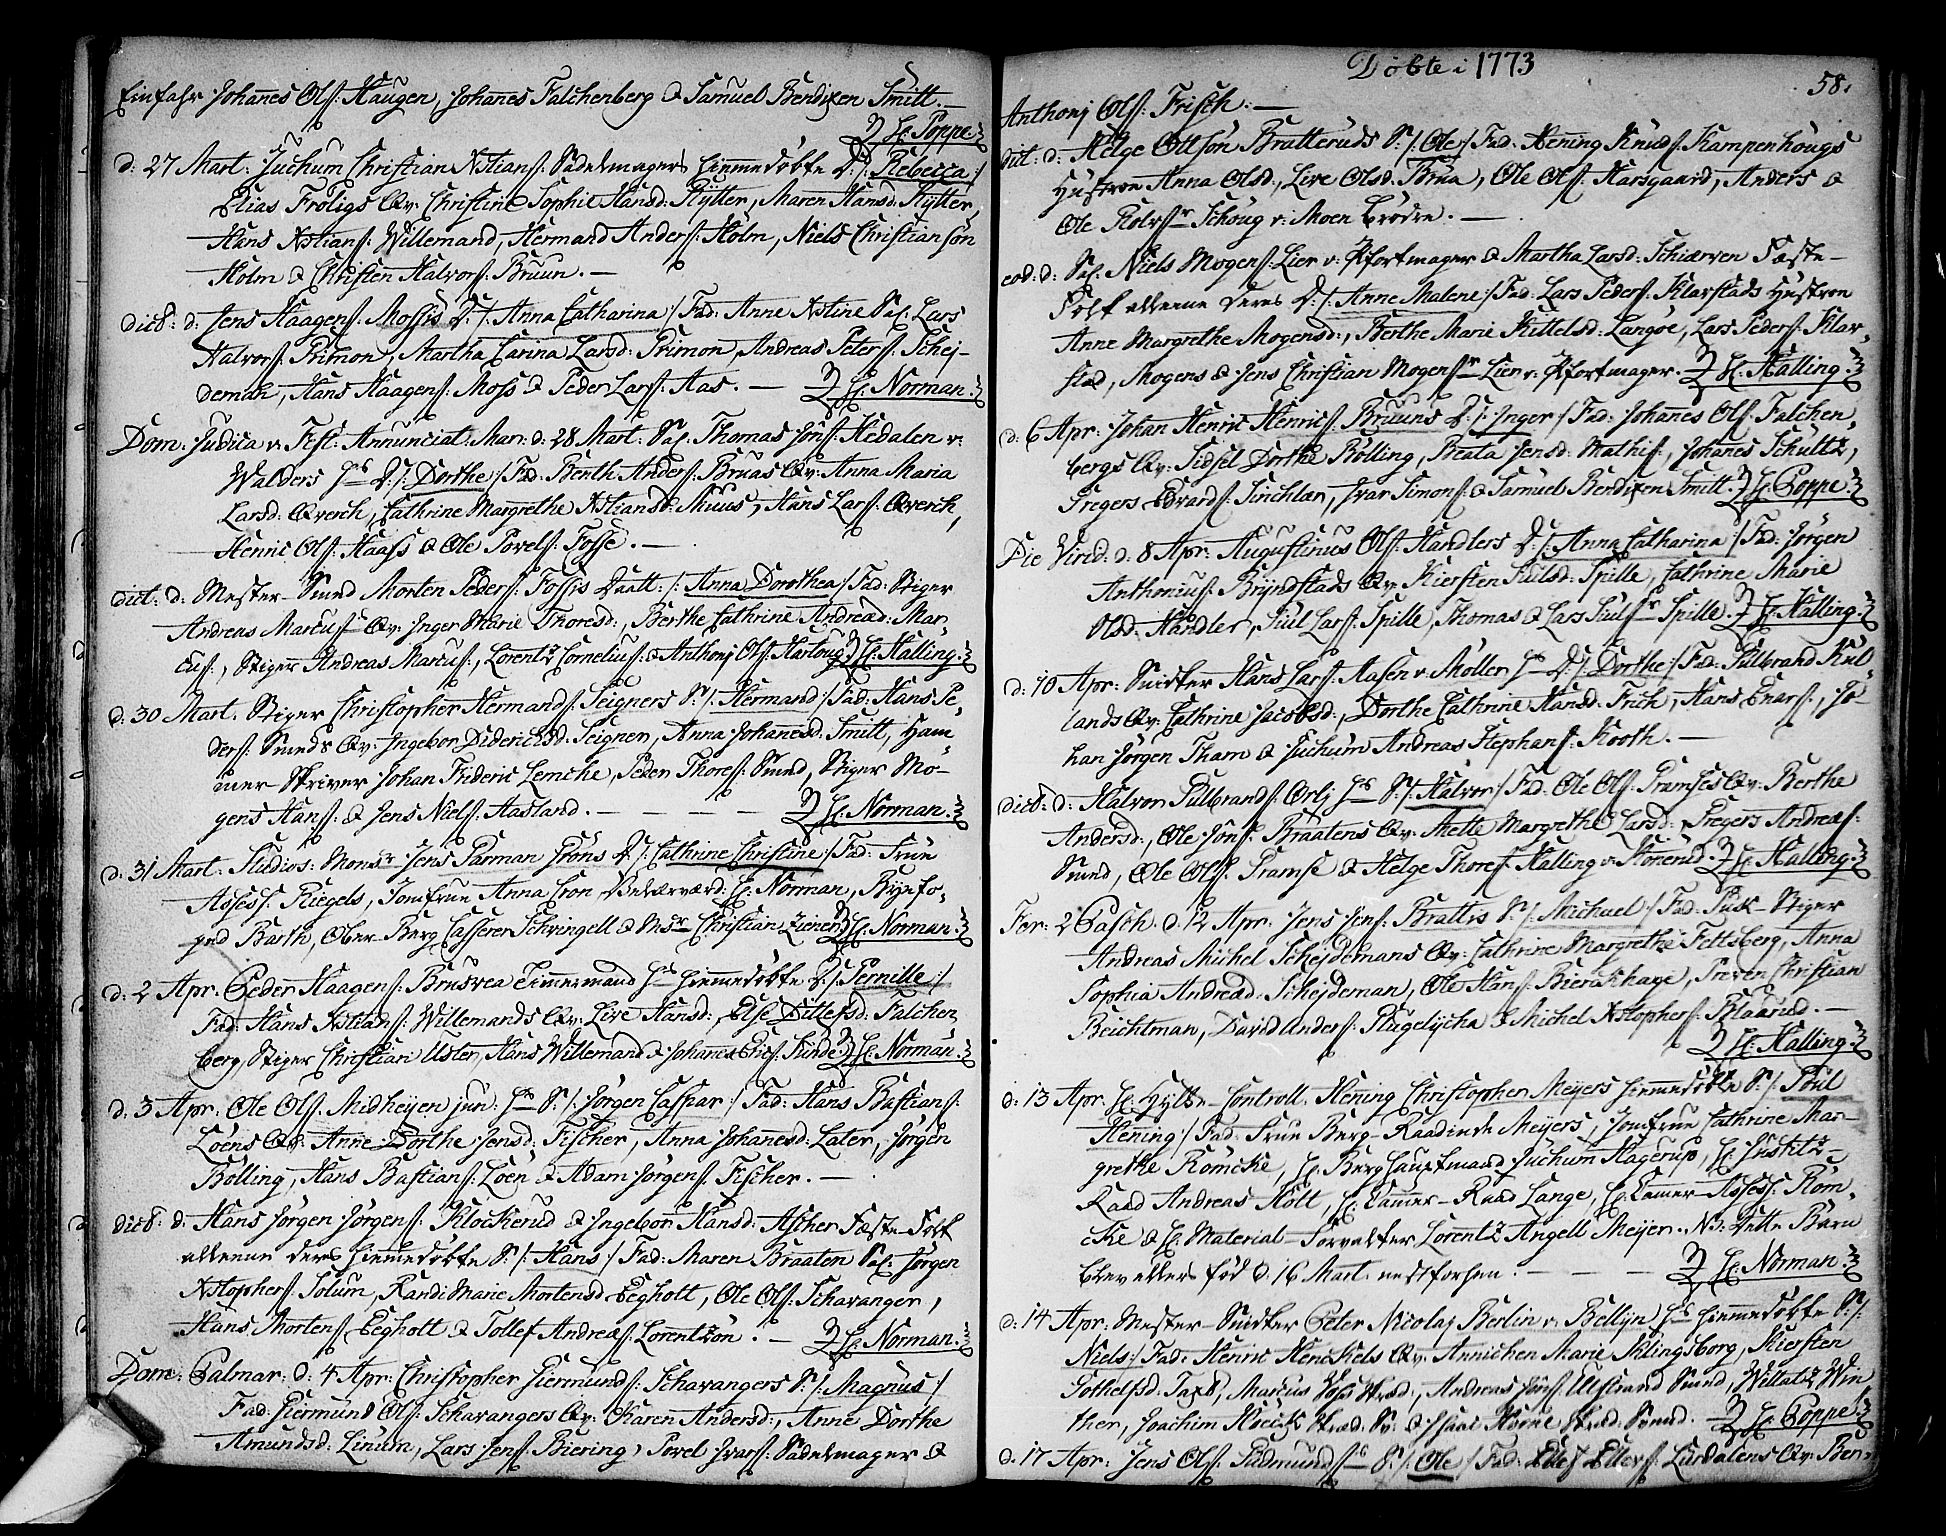 Einfahr Johanes Ols: Haugen, Johanes Falchenberg & Samuel Bendixen Smitt. —
H: Poppe.
d: 27 Mart: Juchum Christian Nstians: Sadelmagers hiemmedøbte D: /: Rebecca :/
Elias Fröligs Qv: Christine Sophie Hansd: Rÿtter, Maren Hansd: Rÿtter,
Hans Xstians: Willemand, Hermand Anders: Holm, Niels Christiansön
Holm & Christen Halvors: Bruun. —
dict: d: Jens Haagens: Mossis D: /: Anna Catharina :/ Fad: Anne Xstine Sal. Lars
Halvors: Primon, Martha Carina Larsd: Primon, Andreas Peters: Schej-
deman, Hans Haagens: Moss & Peder Lars: Aas. — H: Norman.
Dom: Judica v: Fest: Annunciat: Mar: d: 28 Mart: Sal. Thomas Jons: Hedalen v:
Walders D: /: Dorthe :/ Fad: Benth Anders: Bruas Qv: Anna Maria
Larsd: Qverch, Cathrine Margrethe Xstiansd: Muus, Hans Lars: Qverch,
Henric Ols: Haass & Ole Povels: Fosse. —
dict: d: Mester-Smed Morten Peders: Fossis Datt: /: Anna Dorothea :/ Fad: Stiger
Andreas Marcus: Qv: Inger Marie Thoresd:, Berthe Cathrine Andread: Mar-
cus:, Stiger Andreas Marcus:, Lorentz Cornelius: & Anthonj Ols: Hartoug. H: Halling.
d: 30 Mart: Stiger Christopher Hermands: Seigners S: /: Hermand :/ Fad: Hans Pe-
ders: Smeds Qv: Ingebor Diderichsd: Seigner, Anna Johanesd: Smitt, Ham-
mer-Skriver Johan Frideric Lemche, Peder Thores: Smed, Stiger Mo-
gens Hans: & Jens Niels: Aasland. — H: Norman.
d: 31 Mart: Studios: Monsr Jens Parman Iröns D: /: Cathrine Christine :/ Fad: Frue
Assess: Riegels, Jomfrue Anna Cron, H: Norman, Bÿnfo-
ged Barth, Ober-Berg Casserer Schvingell & Msr Christian Zienen. H: Norman.
d: 2 Apr: Peder Haagens: Brusvea Timmermand hiemmedøbte D: /: Pernille :/
Fad: Hans Xstians: Willemands Qv: Live Hansd:, Else Ditlefsd: Falchen-
berg, Stiger Christian Uster, Hans Willemand & Johanes Erics: Funde. H: Norman.
d: 3 Apr: Ole Ols: Midheÿen jun: S: /: Jörgen Casspar :/ Fad: Hans Bastians:
Löens Qv: Anne Dorthe Jensd: Fischer, Anna Johanesd: Later, Jörgen
Bölling, Hans Bastians: Löen & Adam Jörgens: Fischer. —
dict: d: Hans Jörgen Jörgens: Klockerud & Ingebor Hansd: Ascher Fæste-Folk
allerene deres hiemmedøbte S: /: Hans :/ Fad: Maren Braaten Sal. Jörgen
Xstophers: Solum, Randi Marie Mortensd: Eegholt, Ole Ols: Schavanger,
Hans Mortens: Eegholt & Tollef Andreas: Lorentzön. — H: Norman.
Dom: Palmar: d: 4 Apr: Christopher Giermunds: Schavangers S: /: Magnus :/
Fad: Giermund Ols: Schavangers Qv: Karen Andersd:, Anne Dorthe
Amundsd: Linum, Lars Jens: Biering, Povel Ivars: Sadelmager &
Döbte i 1773
58.
Anthonj Ols: Frisch. —
dit: d: Helge Ottsön Bratteruds S: /: Ole :/ Fad: Hening Knuds: Kampenhougs
Hustroe Anna Olsd:, Live Olsd: Brua, Ole Ols: Harsgaard, Anders &
Ole Rolvs: Schoug v: Moen Brödre. —
eod: d: Sal. Niels Mogens: Lier v: Pfortmager & Martha Larsd: Schierven Fæste-
Folk allerene deres D: /: Anne Malene :/ Fad: Lars Peders: Klarstads Hustroe
Anne Margrethe Mogensd:, Berthe Marie Kittelsd: Langöe, Lars Peders: Klar-
stad, Mogens & Jens Christian Mogens: Lier v: Pfortmager. H: Halling.
d: 6 Apr: Johan Henric Henrics: Bruuns D: /: Inger :/ Fad: Johanes Ols: Falchen-
bergs Qv: Sidsel Dorthe Bölling, Beata Jensd: Mathis:, Johanes Schultz,
Fregers Edvards: Sinchlar, Ivar Simons: & Samuel Bendixen Smitt. H: Poppe.
Die Virid: d: 8 Apr: Augustinus Ols: Handlers D: /: Anna Catharina :/ Fad: Jörgen
Anthonius: Brÿndstads Qv: Kiersten Juulsd: Spille, Cathrine Marie
Olsd: Handler, Juul Lars: Spille, Thomas & Lars Juuls: Spille. H: Halling.
d: 10 Apr: Snidker Hans Lars: Aasen v: Möller D: /: Dorthe :/ Fad: Gulbrand Kul-
lands Qv: Cathrine Jacobsd:, Dorthe Cathrine Hansd: Frich, Hans Enars:, Jo-
han Jörgen Tham & Juchum Andreas Stephans: Kooth. —
dict: d: Halvor Gulbrands: Orlj S: /: Halvor :/ Fad: Ole Ols: Pramses Qv: Berthe
Andersd:, Ole Jons: Braatens Qv: Mette Margrethe Larsd:, Fregers Andreas:
Smed, Ole Ols: Pramse & Helge Thores: Halling v: Konerud. H: Halling.
Fer: 2 Pasch: d: 12 Apr: Jens Jens: Brattis S: /: Michael :/ Fad: Puk-Stiger
Andreas Michel Schejdemans Qv: Cathrine Margrethe Fettsberg, Anna
Sophia Andread: Schejdeman, Ole Hans: Bierckhage, Preven Christian
Beichtman, David Anders: Flugelÿcha & Michel Xstophers: Blaarud. —
H: Halling.
d: 13 Apr: H: Hÿtte-Controll: Hening Christopher Meÿers hiemmedøbte S: /: Poul
Hening :/ Fad: Frue Berg-Raadinde Meÿers, Jomfrue Cathrine Mar-
grethe Römcke, H: Berghauptmand Juchum Hagerup, H: Justitz-
Raad Andreas Holt, H: Cammer-Raad Lange, H: Camer-Assess: Röm-
cke & H: Material-Forvalter Lorentz Angell Meÿer. NB: Dette Barn
blev ellers fød d: 16 Mart: nestforhen. — H: Norman.
d: 14 Apr: Mester-Snidker Peter Nicolaj Berlin v: Bellijn hiemmedøbte S: /:
Niels :/ Fad: Henric Henckels Qv: Annichen Marie Klingsborg, Kiersten
Gothelfsd: Taxt, Marcus Voss Stud:, Andreas Jons: Ulstrand Smed, Willatz Win-
ther, Joachim & Isaac Horne Stud: H: Poppe.
d: 17 Apr: Jens Ols: Gudmunds: S: /: Ole :/ Fad: Edle Ellefs: Lurdalens Qv: Ber-